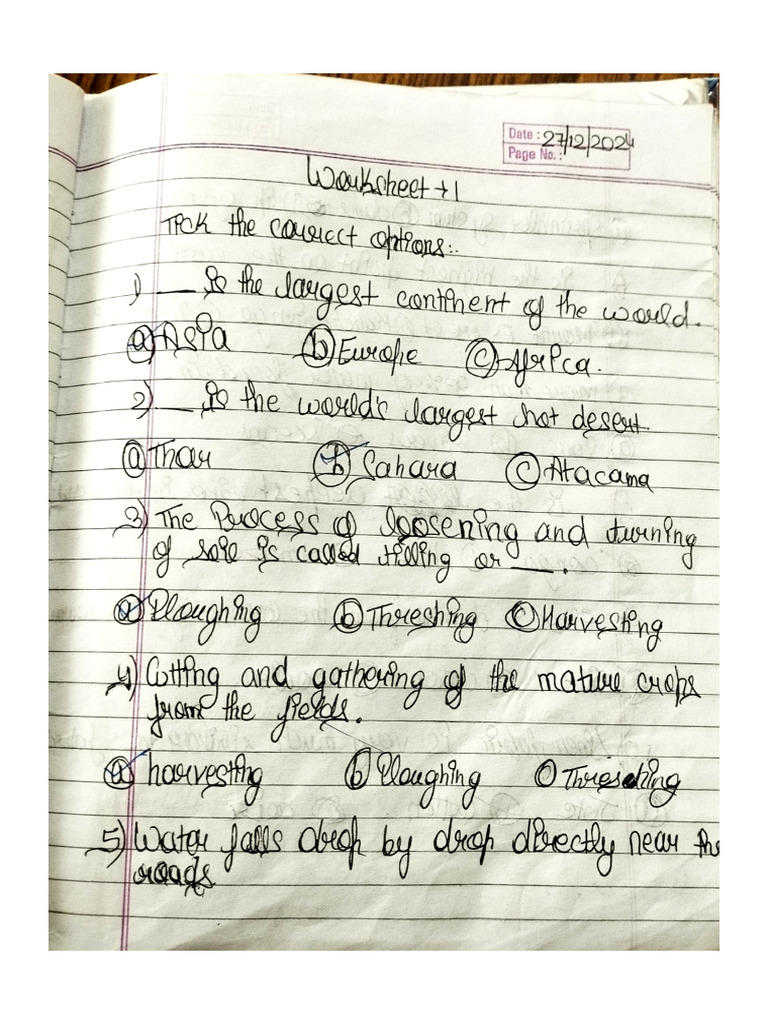 Date: 27/12/2024
Page No.:
Worksheet → 1
Tick the correct options:
1) __ is the largest continent of the world.
(a) Asia (b) Europe (c) Africa.
2) __ is the world's largest hot desert
(a) Thar (b) Sahara (c) Atacama
3) The Process of loosening and turning
of soil is called tilling or __.
(a) Ploughing (b) Threshing (c) Harvesting
4) Cutting and gathering of the mature crops
from the fields.
(a) harvesting (b) Ploughing (c) Threshing
5) Water falls drop by drop directly near the
roads